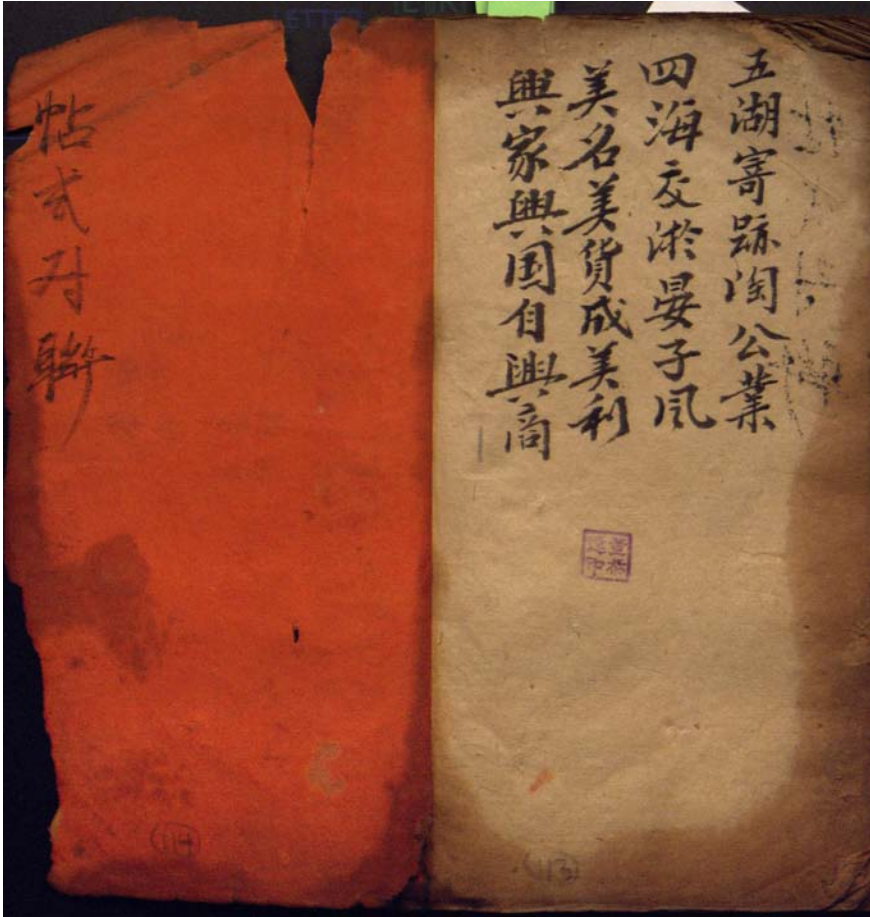 五湖寄跡陶公業
四海交游晏子风
美名美貨成美利
興家興国自興商
帖式对聯
113
114